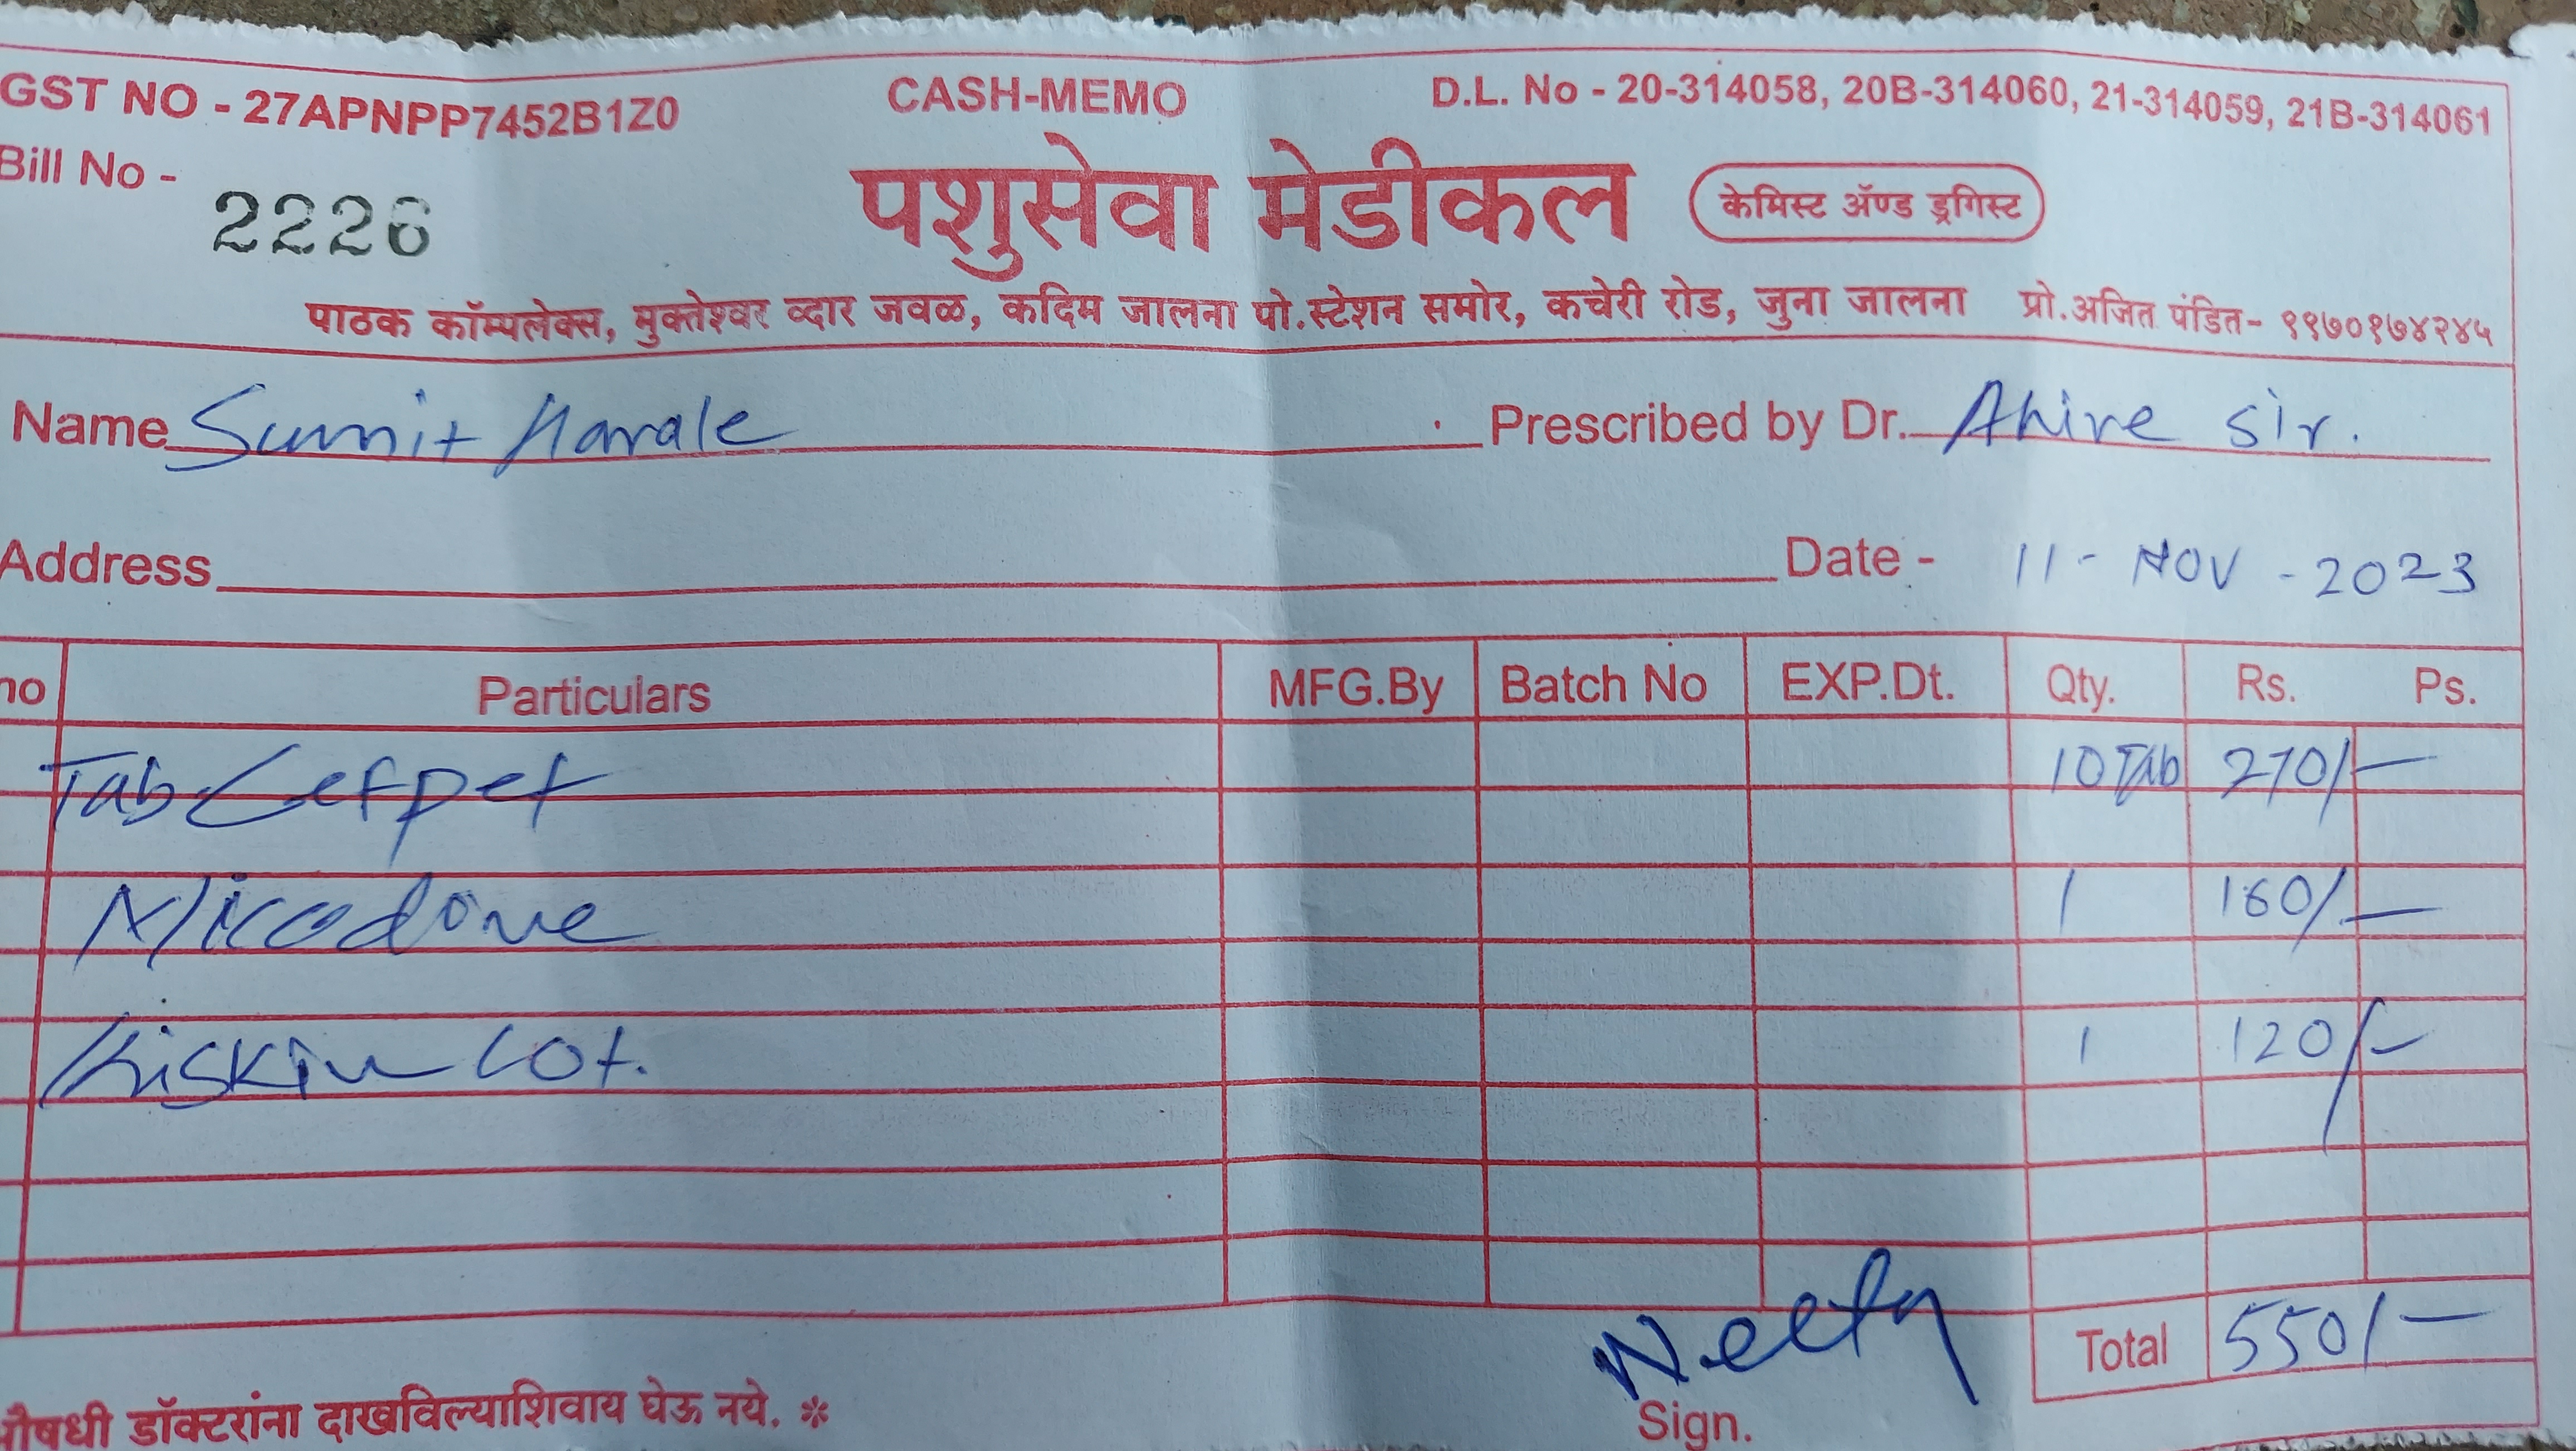 GST NO - 27APNPP7452B1Z0 CASH-MEMO D.L. No - 20-314058, 20B-314060, 21-314059, 21B-314061
Bill No - 2226
पशुसेवा मेडीकल केमिस्ट ॲण्ड ड्रगिस्ट
पाठक कॉम्पलेक्स, मुक्तेश्वर व्दार जवळ, कदिम जालना पो.स्टेशन समोर, कचेरी रोड, जुना जालना प्रो.अजित पंडित- ९९७०१७४२४५
Name Sumit Harale Prescribed by Dr. Ahire Sir.
Address Date - 11 - NOV - 2023
no Particulars MFG.By Batch No EXP.Dt. Qty. Rs. Ps.
Tab Cefpet 10 Tab 270/-
1 160/-
Kiskin Lot. 1 120/-
Total 550/-
Sign.
डॉक्टरांना दाखविल्याशिवाय घेऊ नये. *